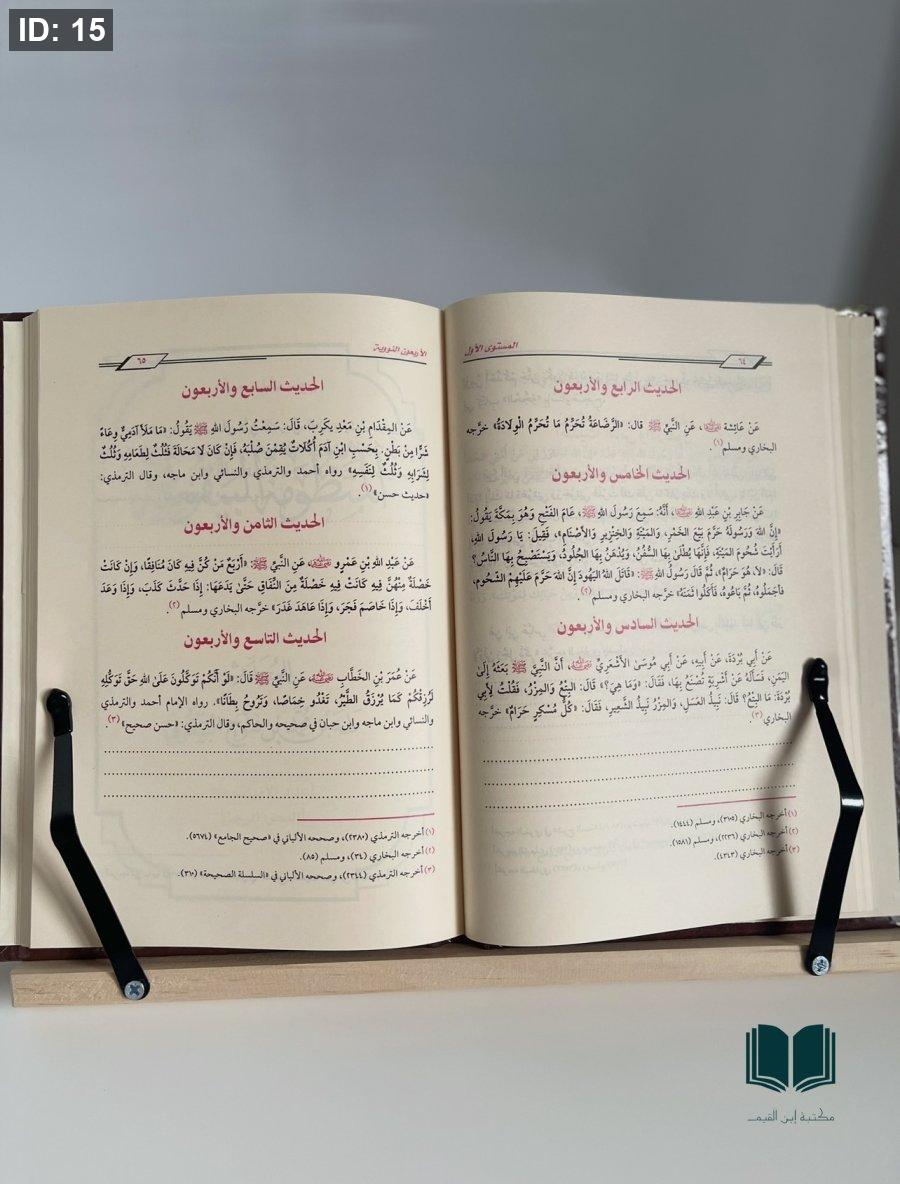 ID: 15
المستوى الأول
٦٤
الحديث الرابع والأربعون
عَنْ عَائِشَةَ رضي الله عنها، عَنِ النَّبِيِّ ﷺ قال: «الرَّضَاعَةُ تُحَرِّمُ مَا تُحَرِّمُ الْوِلَادَةُ» خرَّجه
البخاري ومسلم(١).
الحديث الخامس والأربعون
عَنْ جَابِرِ بْنِ عَبْدِ اللهِ رضي الله عنه، أَنَّهُ: سَمِعَ رَسُولَ اللهِ ﷺ، عَامَ الفَتْحِ وَهُوَ بِمَكَّةَ يَقُولُ:
«إِنَّ اللهَ وَرَسُولَهُ حَرَّمَ بَيْعَ الخَمْرِ، وَالمَيْتَةِ وَالخِنْزِيرِ وَالأَصْنَامِ»، فَقِيلَ: يَا رَسُولَ اللهِ،
أَرَأَيْتَ شُحُومَ المَيْتَةِ، فَإِنَّهَا يُطْلَىٰ بِهَا السُّفُنُ، وَيُدْهَنُ بِهَا الجُلُودُ، وَيَسْتَصْبِحُ بِهَا النَّاسُ؟
قَالَ: «لَا، هُوَ حَرَامٌ»، ثُمَّ قَالَ رَسُولُ اللهِ ﷺ: «قَاتَلَ اللهُ اليَهُودَ إِنَّ اللهَ حَرَّمَ عَلَيْهِمُ الشُّحُومَ،
فَأَجْمَلُوهُ، ثُمَّ بَاعُوهُ، فَأَكَلُوا ثَمَنَهُ» خرَّجه البخاري ومسلم(٢).
الحديث السادس والأربعون
عَنْ أَبِي بُرْدَةَ، عَنْ أَبِيهِ، عَنْ أَبِي مُوسَىٰ الأَشْعَرِيِّ رضي الله عنه، أَنَّ النَّبِيَّ ﷺ بَعَثَهُ إِلَىٰ
اليَمَنِ، فَسَأَلَهُ عَنْ أَشْرِبَةٍ تُصْنَعُ بِهَا، فَقَالَ: «وَمَا هِيَ؟» قَالَ: البِتْعُ وَالمِزْرُ، فَقُلْتُ لِأَبِي
بُرْدَةَ: مَا البِتْعُ؟ قَالَ: نَبِيذُ العَسَلِ، وَالمِزْرُ نَبِيذُ الشَّعِيرِ، فَقَالَ: «كُلُّ مُسْكِرٍ حَرَامٌ» خرَّجه
البخاري(٣).
(١) أخرجه البخاري (٣١٠٥)، ومسلم (١٤٤٤).
(٢) أخرجه البخاري (٢٢٣٦)، ومسلم (١٥٨١).
(٣) أخرجه البخاري (٤٣٤٣).
الأربعون النووية
٦٥
الحديث السابع والأربعون
عَنْ المِقْدَامِ بْنِ مَعْدِ يكَرِبَ، قَالَ: سَمِعْتُ رَسُولَ اللهِ ﷺ يَقُولُ: «مَا مَلَأَ آدَمِيٌّ وِعَاءً
شَرًّا مِنْ بَطْنٍ. بِحَسْبِ ابْنِ آدَمَ أُكُلَاتٌ يُقِمْنَ صُلْبَهُ، فَإِنْ كَانَ لَا مَحَالَةَ فَثُلُثٌ لِطَعَامِهِ وَثُلُثٌ
لِشَرَابِهِ وَثُلُثٌ لِنَفَسِهِ» رواه أحمد والترمذي والنسائي وابن ماجه، وقال الترمذي:
«حديث حسن»(١).
الحديث الثامن والأربعون
عَنْ عَبْدِ اللهِ بْنِ عَمْرٍو رضي الله عنه، عَنِ النَّبِيِّ ﷺ: «أَرْبَعٌ مَنْ كُنَّ فِيهِ كَانَ مُنَافِقًا، وَإِنْ كَانَتْ
خَصْلَةٌ مِنْهُنَّ فِيهِ كَانَتْ فِيهِ خَصْلَةٌ مِنَ النِّفَاقِ حَتَّىٰ يَدَعَهَا: إِذَا حَدَّثَ كَذَبَ، وَإِذَا وَعَدَ
أَخْلَفَ، وَإِذَا خَاصَمَ فَجَرَ، وَإِذَا عَاهَدَ غَدَرَ» خرَّجه البخاري ومسلم(٢).
الحديث التاسع والأربعون
عَنْ عُمَرَ بْنِ الخَطَّابِ رضي الله عنه، عَنِ النَّبِيِّ ﷺ قَالَ: «لَوْ أَنَّكُمْ تَوَكَّلُونَ عَلَىٰ اللهِ حَقَّ تَوَكُّلِهِ
لَرَزَقَكُمْ كَمَا يُرْزَقُ الطَّيْرُ، تَغْدُو خِمَاصًا، وَتَرُوحُ بِطَانًا». رواه الإمام أحمد والترمذي
والنسائي وابن ماجه وابن حبان في صحيحه والحاكم، وقال الترمذي: «حسن صحيح»(٣).
(١) أخرجه الترمذي (٢٣٨٠)، وصححه الألباني في «صحيح الجامع» (٥٦٧٤).
(٢) أخرجه البخاري (٣٤)، ومسلم (٨٥).
(٣) أخرجه الترمذي (٢٣٤٤)، وصححه الألباني في «السلسلة الصحيحة» (٣١٠).
مكتبة إبن القيم